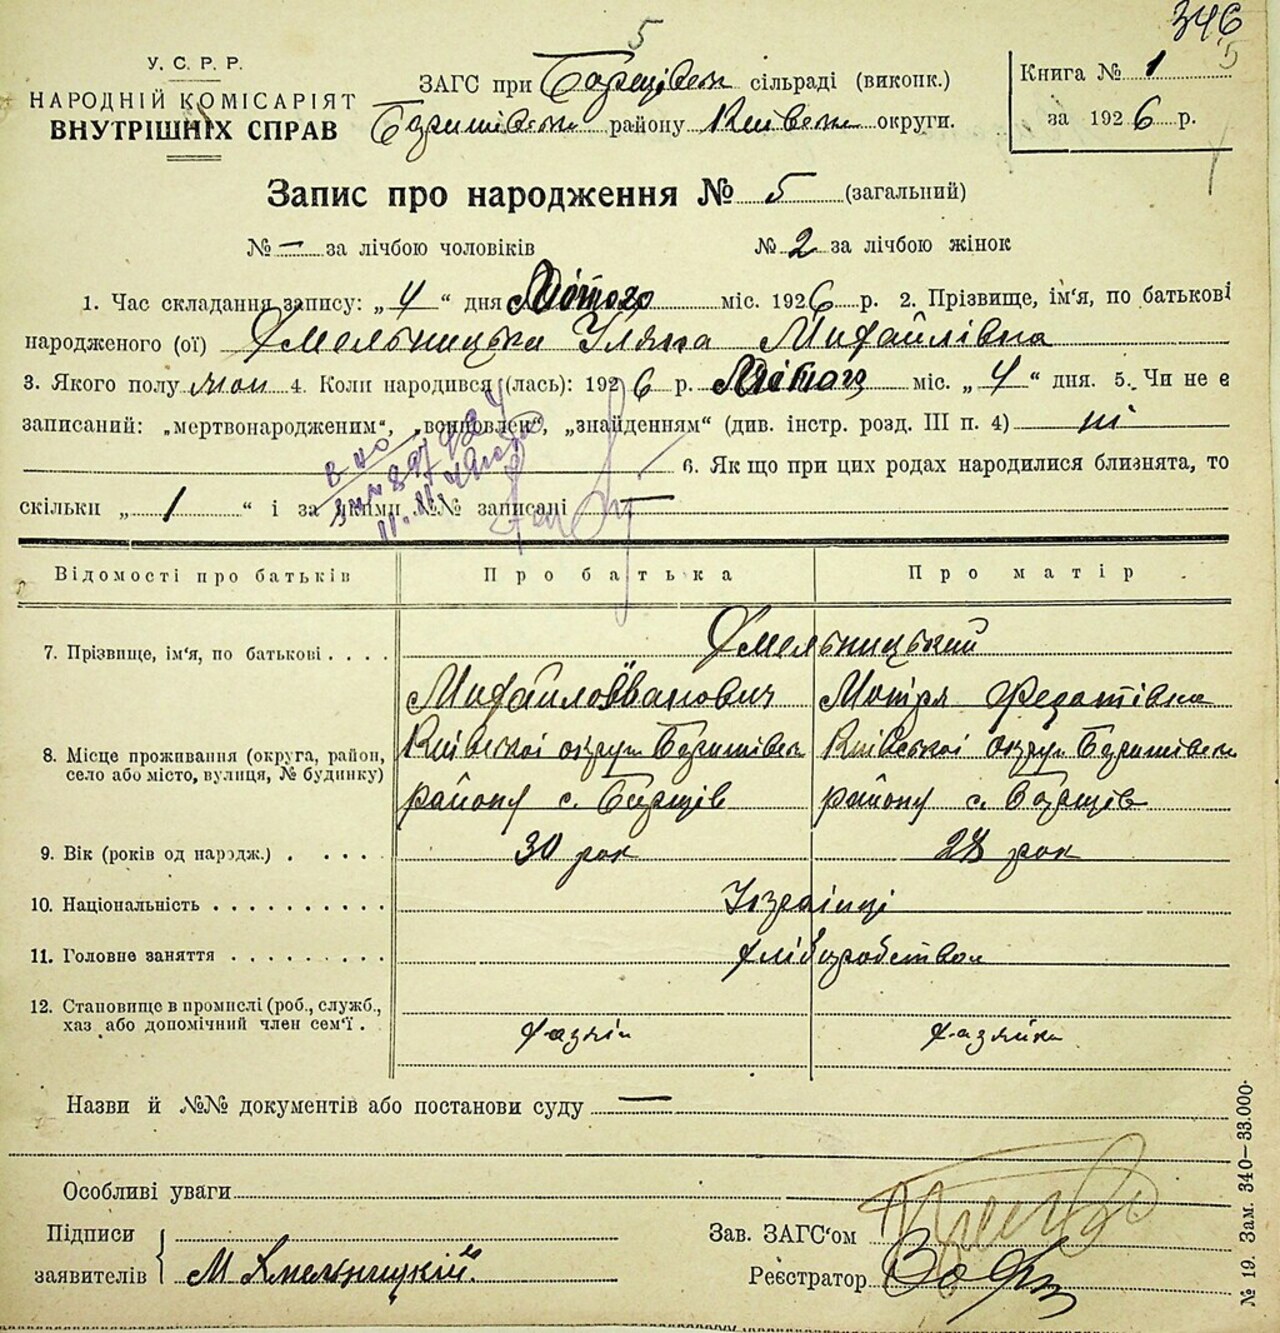 346
5
5
У. С. Р. Р.
НАРОДНІЙ КОМІСАРІЯТ
ВНУТРІШНІХ СПРАВ
ЗАГС при Борщівськ сільраді (виконк.)
Баришівськ району Київськ округи.
Книга № 1
за 1926 р.
Запис про народження № 5 (загальний)
№ — за лічбою чоловіків № 2 за лічбою жінок
1. Час складання запису: „ 4 “ дня Лютого міс. 1926 р. 2. Прізвище, ім'я, по батькові
народженого (ої) Хмельницька Уляна Михайлівна
3. Якого полу жон 4. Коли народився (лась): 1926 р. Лютого міс. „ 4 “ дня. 5. Чи не є
записаний: „мертвонародженим“, „вснновлен“, „знайденням“ (див. інстр. розд. III п. 4) ні
6. Як що при цих родах народилися близнята, то
скільки „ 1 “ і за якими №№ записані —
Відомості про батьків Про батька Про матір
7. Прізвище, ім'я, по батькові . . . . Хмельницький
Михайло Іванович Мотря Федотівна
8. Місце проживання (округа, район, село або місто, вулиця, № будинку)
Київської округи Баришівськ Київської округи Баришівськ
району с. Борщів району с. Борщів
9. Вік (років од народж.) . . . . . 30 рок 28 рок
10. Національність . . . . . . . . . . Українці
11. Головне заняття . . . . . . . . . Хліборобством
12. Становище в промислі (роб., служб., хаз. або допомічний член сем'ї .
Хазяїн Хазяйка
Назви й №№ документів або постанови суду —
Особливі уваги
Підписи
заявителів М Хмельницкій
Зав. ЗАГС'ом
Реєстратор
№ 19. Зам. 340—33.000.